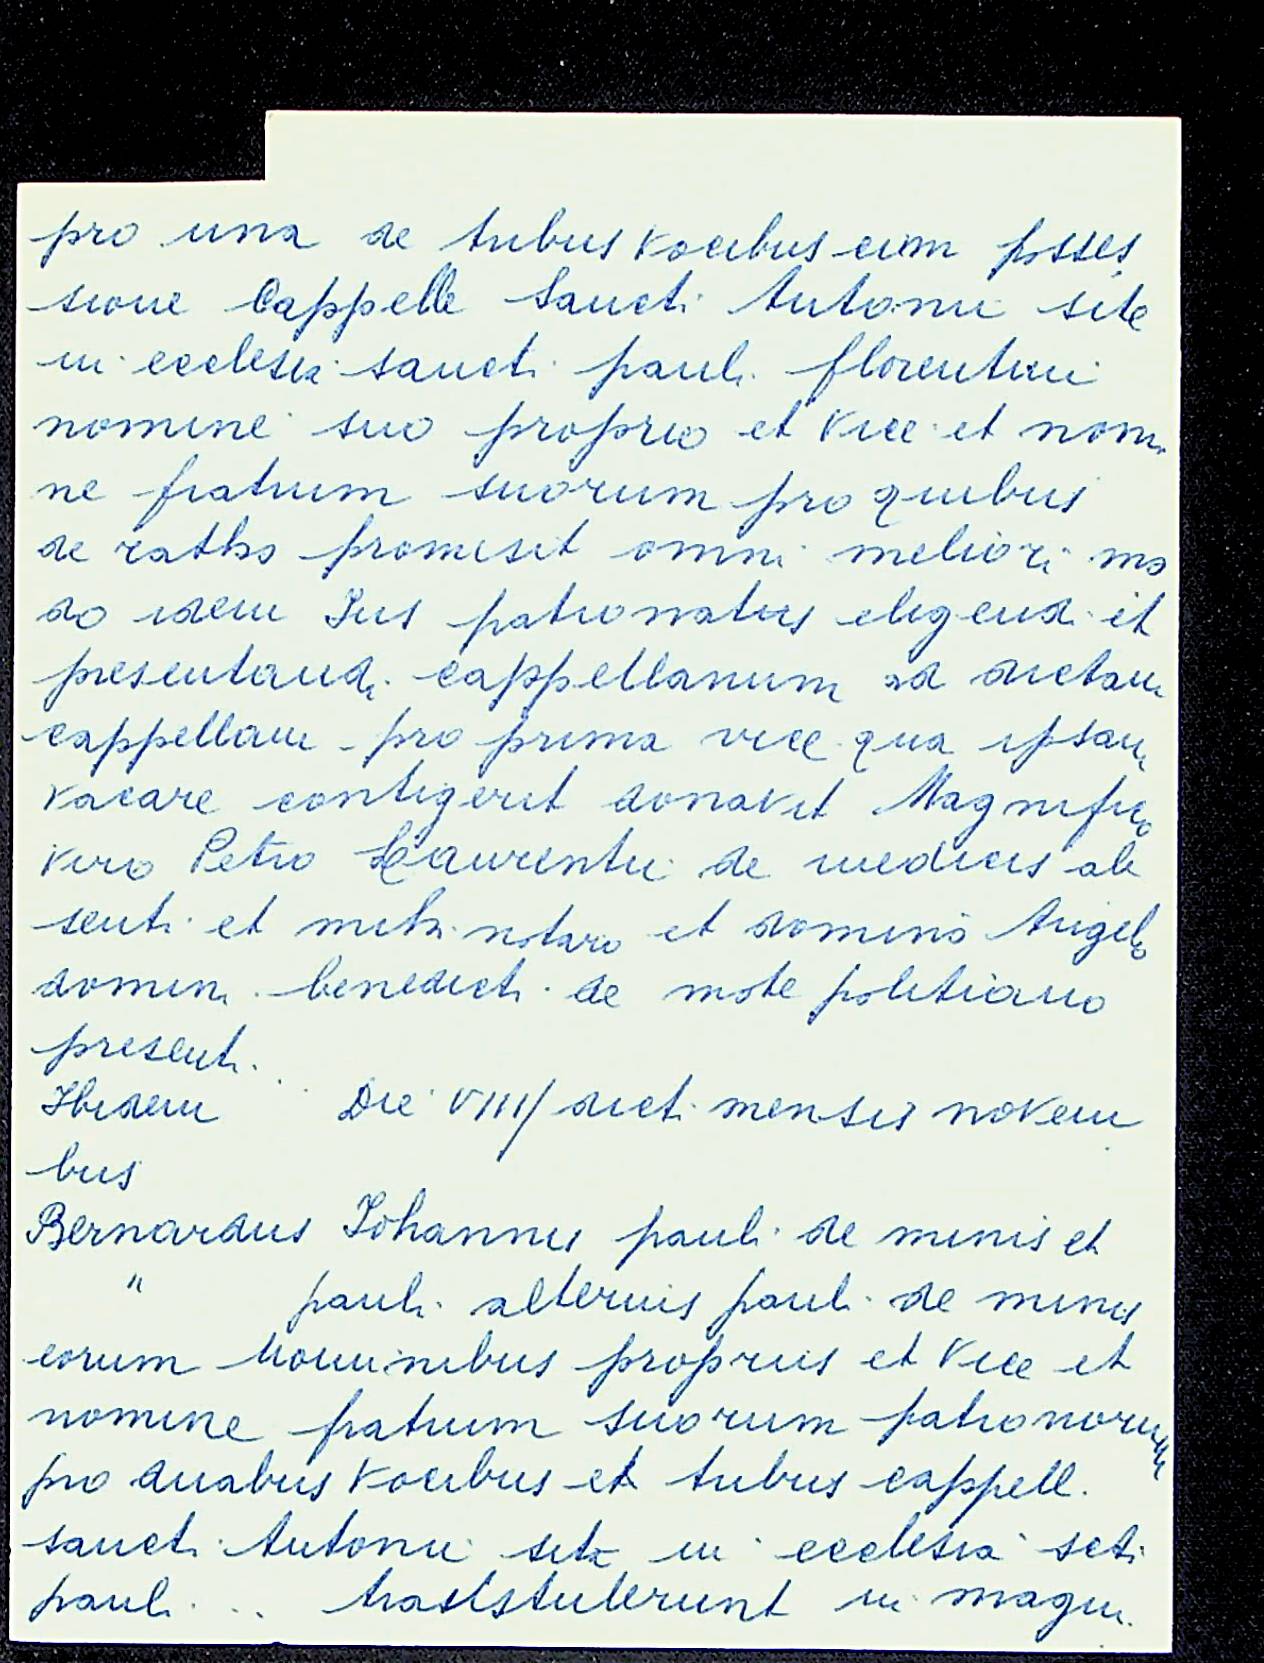 pro una de tribus vocibus cum posses
sione Cappelle Sancti Antonii site
in ecclesia sancti pauli florentini
nomine suo proprio et vice et nomi
ne fratrum suorum pro quibus
de ratho promisit omni meliori mo
do idem Jus patronatus eligendi et
presentandi cappellanum ad dictam
cappellam pro prima vice qua ipsam
vacare contigerit donavit Magnifico
viro Petro Laurentii de medicis ab
senti et mihi notaro et domino Angelo
domini benedicti de mote politiano
presenti.
Ibidem Die VIII/ dicti mensis novem
bris
Bernardus Johannis pauli de minis et
" pauli alterius pauli de minis
eorum nominibus propriis et vice et
nomine fratrum suorum patronorum
pro duabus vocibus et tribus cappell.
sancti Antonii site in ecclesia scti
pauli ... trastulerunt in magni.